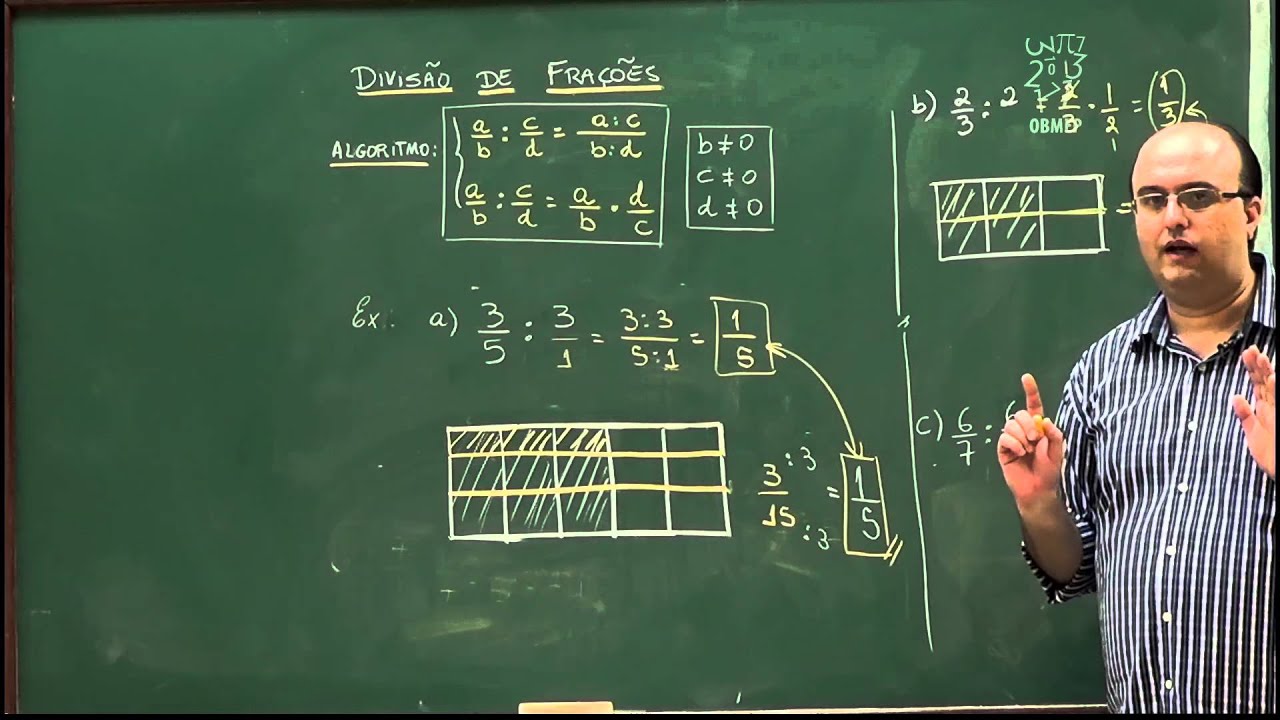 DIVISÃO DE FRAÇÕES
ALGORITMO: a/b : c/d = a:c/b:d
a/b : c/d = a/b · d/c
b ≠ 0
c ≠ 0
d ≠ 0
Ex: a) 3/5 : 3/1 = 3:3/5:1 = 1/5
3 :3 / 15 :3 = 1/5
OBMEP
b) 2/3 : 2 = 2/3 · 1/2 = 1/3
=
c) 6/7 : 6